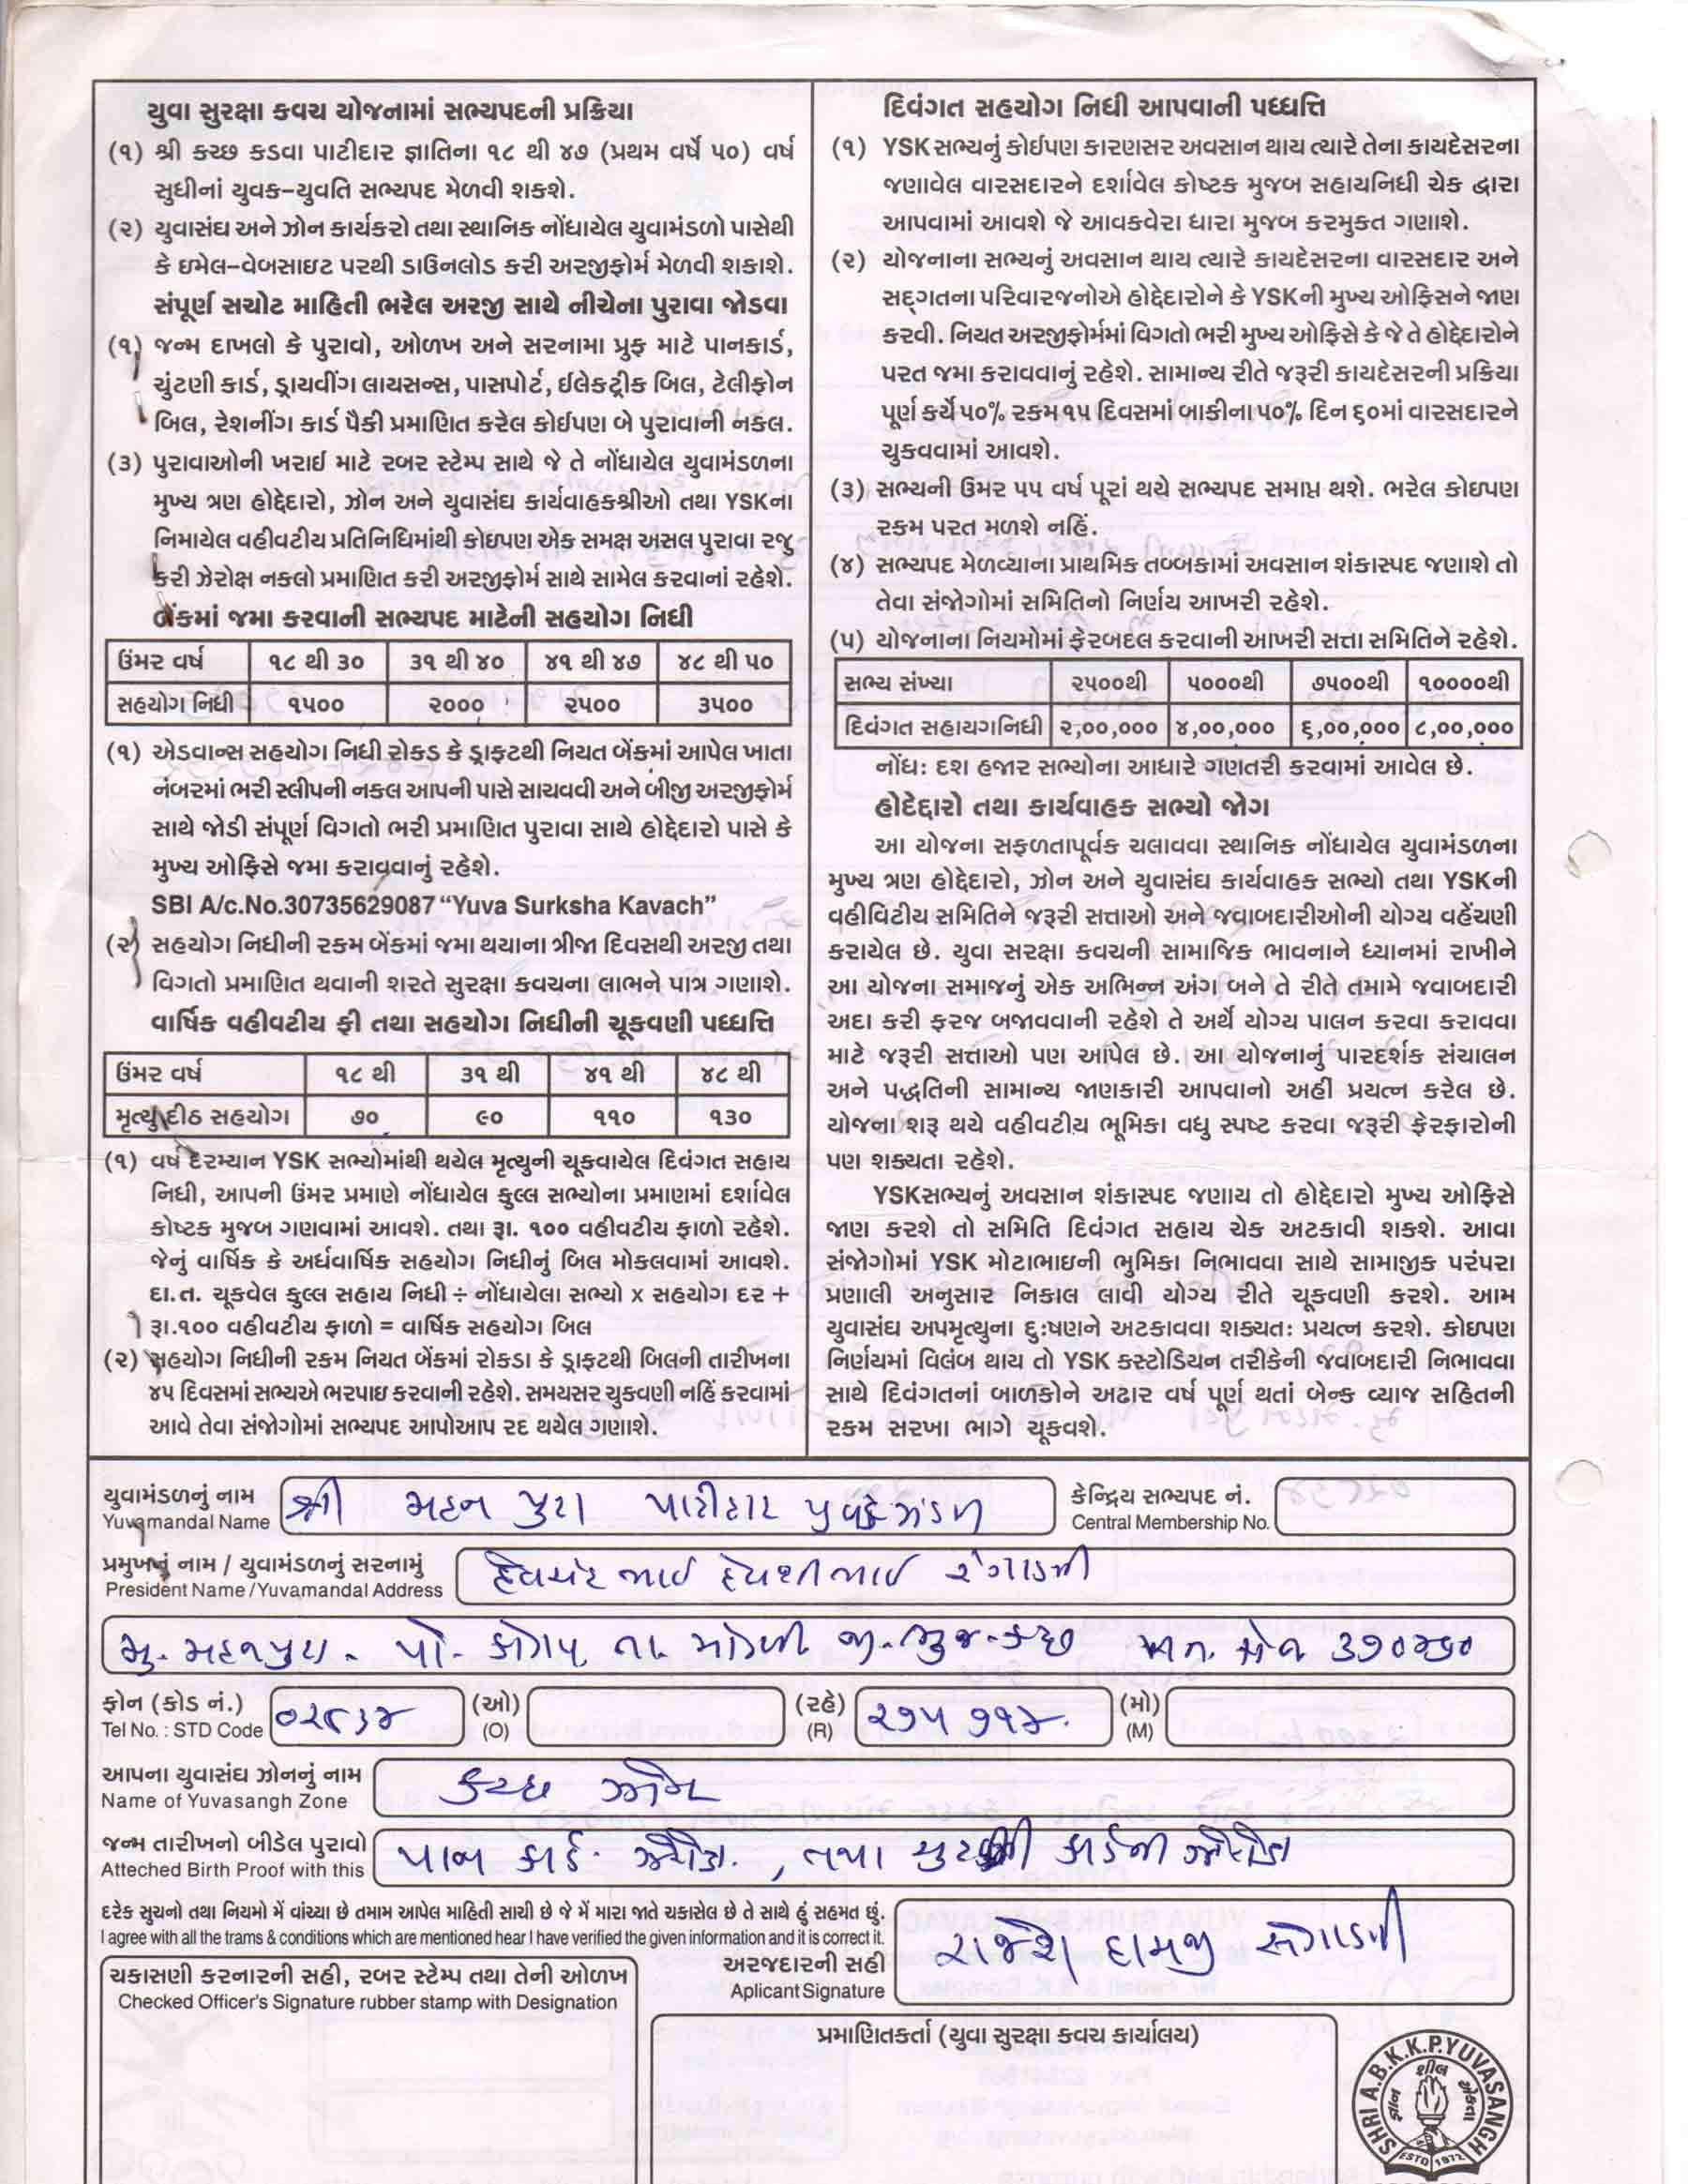 યુવા સુરક્ષા કવચ યોજનામાં સભ્યપદની પ્રક્રિયા
(૧) શ્રી કચ્છ કડવા પાટીદાર જ્ઞાતિના ૧૮ થી ૪૭ (પ્રથમ વર્ષે ૫૦) વર્ષ
સુધીનાં યુવક-યુવતિ સભ્યપદ મેળવી શકશે.
(૨) યુવાસંઘ અને ઝોન કાર્યકરો તથા સ્થાનિક નોંધાયેલ યુવામંડળો પાસેથી
કે ઇમેલ-વેબસાઇટ પરથી ડાઉનલોડ કરી અરજીફોર્મ મેળવી શકાશે.
સંપૂર્ણ સચોટ માહિતી ભરેલ અરજી સાથે નીચેના પુરાવા જોડવા
(૧) જન્મ દાખલો કે પુરાવો, ઓળખ અને સરનામા પ્રુફ માટે પાનકાર્ડ,
ચુંટણી કાર્ડ, ડ્રાયવીંગ લાયસન્સ, પાસપોર્ટ, ઈલેક્ટ્રીક બિલ, ટેલીફોન
બિલ, રેશનીંગ કાર્ડ પૈકી પ્રમાણિત કરેલ કોઈપણ બે પુરાવાની નકલ.
(૩) પુરાવાઓની ખરાઈ માટે રબર સ્ટેમ્પ સાથે જે તે નોંધાયેલ યુવામંડળના
મુખ્ય ત્રણ હોદ્દેદારો, ઝોન અને યુવાસંઘ કાર્યવાહકશ્રીઓ તથા YSKના
નિમાયેલ વહીવટીય પ્રતિનિધિમાંથી કોઇપણ એક સમક્ષ અસલ પુરાવા રજુ
કરી ઝેરોક્ષ નકલો પ્રમાણિત કરી અરજીફોર્મ સાથે સામેલ કરવાનાં રહેશે.
બેંકમાં જમા કરવાની સભ્યપદ માટેની સહયોગ નિધી
ઉંમર વર્ષ ૧૮ થી ૩૦ ૩૧ થી ૪૦ ૪૧ થી ૪૭ ૪૮ થી ૫૦
સહયોગ નિધી ૧૫૦૦ ૨૦૦૦ ૨૫૦૦ ૩૫૦૦
(૧) એડવાન્સ સહયોગ નિધી રોકડ કે ડ્રાફ્ટથી નિયત બેંકમાં આપેલ ખાતા
નંબરમાં ભરી સ્લીપની નકલ આપની પાસે સાચવવી અને બીજી અરજીફોર્મ
સાથે જોડી સંપૂર્ણ વિગતો ભરી પ્રમાણિત પુરાવા સાથે હોદ્દેદારો પાસે કે
મુખ્ય ઓફિસે જમા કરાવવાનું રહેશે.
SBI A/c.No.30735629087 “Yuva Surksha Kavach”
(૨) સહયોગ નિધીની રકમ બેંકમાં જમા થયાના ત્રીજા દિવસથી અરજી તથા
વિગતો પ્રમાણિત થવાની શરતે સુરક્ષા કવચના લાભને પાત્ર ગણાશે.
વાર્ષિક વહીવટીય ફી તથા સહયોગ નિધીની ચૂકવણી પધ્ધતિ
ઉંમર વર્ષ ૧૮ થી ૩૧ થી ૪૧ થી ૪૮ થી
મૃત્યુ દીઠ સહયોગ ૭૦ ૯૦ ૧૧૦ ૧૩૦
(૧) વર્ષ દરમ્યાન YSK સભ્યોમાંથી થયેલ મૃત્યુની ચૂકવાયેલ દિવંગત સહાય
નિધી, આપની ઉંમર પ્રમાણે નોંધાયેલ કુલ્લ સભ્યોના પ્રમાણમાં દર્શાવેલ
કોષ્ટક મુજબ ગણવામાં આવશે. તથા રૂા. ૧૦૦ વહીવટીય ફાળો રહેશે.
જેનું વાર્ષિક કે અર્ધવાર્ષિક સહયોગ નિધીનું બિલ મોકલવામાં આવશે.
દા.ત. ચૂકવેલ કુલ્લ સહાય નિધી ÷ નોંધાયેલા સભ્યો x સહયોગ દર +
રૂા.૧૦૦ વહીવટીય ફાળો = વાર્ષિક સહયોગ બિલ
(૨) સહયોગ નિધીની રકમ નિયત બેંકમાં રોકડા કે ડ્રાફ્ટથી બિલની તારીખના
૪૫ દિવસમાં સભ્યએ ભરપાઇ કરવાની રહેશે. સમયસર ચુકવણી નહિં કરવામાં
આવે તેવા સંજોગોમાં સભ્યપદ આપોઆપ રદ થયેલ ગણાશે.
દિવંગત સહયોગ નિધી આપવાની પધ્ધત્તિ
(૧) YSK સભ્યનું કોઈપણ કારણસર અવસાન થાય ત્યારે તેના કાયદેસરના
જણાવેલ વારસદારને દર્શાવેલ કોષ્ટક મુજબ સહાયનિધી ચેક દ્વારા
આપવામાં આવશે જે આવકવેરા ધારા મુજબ કરમુક્ત ગણાશે.
(૨) યોજનાના સભ્યનું અવસાન થાય ત્યારે કાયદેસરના વારસદાર અને
સદ્ગતના પરિવારજનોએ હોદ્દેદારોને કે YSKની મુખ્ય ઓફિસને જાણ
કરવી. નિયત અરજીફોર્મમાં વિગતો ભરી મુખ્ય ઓફિસે કે જે તે હોદ્દેદારોને
પરત જમા કરાવવાનું રહેશે. સામાન્ય રીતે જરૂરી કાયદેસરની પ્રક્રિયા
પૂર્ણ કર્યે ૫૦% રકમ ૧૫ દિવસમાં બાકીના ૫૦% દિન ૬૦માં વારસદારને
ચુકવવામાં આવશે.
(૩) સભ્યની ઉંમર ૫૫ વર્ષ પૂરાં થયે સભ્યપદ સમાપ્ત થશે. ભરેલ કોઇપણ
રકમ પરત મળશે નહિં.
(૪) સભ્યપદ મેળવ્યાના પ્રાથમિક તબ્બકામાં અવસાન શંકાસ્પદ જણાશે તો
તેવા સંજોગોમાં સમિતિનો નિર્ણય આખરી રહેશે.
(૫) યોજનાના નિયમોમાં ફેરબદલ કરવાની આખરી સત્તા સમિતિને રહેશે.
સભ્ય સંખ્યા ૨૫૦૦થી ૫૦૦૦થી ૭૫૦૦થી ૧૦૦૦૦થી
દિવંગત સહાયગનિધી ૨,૦૦,૦૦૦ ૪,૦૦,૦૦૦ ૬,૦૦,૦૦૦ ૮,૦૦,૦૦૦
નોંધ: દશ હજાર સભ્યોના આધારે ગણતરી કરવામાં આવેલ છે.
હોદેદ્દારો તથા કાર્યવાહક સભ્યો જોગ
આ યોજના સફળતાપૂર્વક ચલાવવા સ્થાનિક નોંધાયેલ યુવામંડળના
મુખ્ય ત્રણ હોદ્દેદારો, ઝોન અને યુવાસંઘ કાર્યવાહક સભ્યો તથા YSKની
વહીવિટીય સમિતિને જરૂરી સત્તાઓ અને જવાબદારીઓની યોગ્ય વહેંચણી
કરાયેલ છે. યુવા સરક્ષા કવચની સામાજિક ભાવનાને ધ્યાનમાં રાખીને
આ યોજના સમાજનું એક અભિન્ન અંગ બને તે રીતે તમામે જવાબદારી
અદા કરી ફરજ બજાવવાની રહેશે તે અર્થે યોગ્ય પાલન કરવા કરાવવા
માટે જરૂરી સત્તાઓ પણ આપેલ છે. આ યોજનાનું પારદર્શક સંચાલન
અને પદ્ધતિની સામાન્ય જાણકારી આપવાનો અહીં પ્રયત્ન કરેલ છે.
યોજના શરૂ થયે વહીવટીય ભૂમિકા વધુ સ્પષ્ટ કરવા જરૂરી ફેરફારોની
પણ શક્યતા રહેશે.
YSKસભ્યનું અવસાન શંકાસ્પદ જણાય તો હોદ્દેદારો મુખ્ય ઓફિસે
જાણ કરશે તો સમિતિ દિવંગત સહાય ચેક અટકાવી શકશે. આવા
સંજોગોમાં YSK મોટાભાઇની ભુમિકા નિભાવવા સાથે સામાજીક પરંપરા
પ્રણાલી અનુસાર નિકાલ લાવી યોગ્ય રીતે ચૂકવણી કરશે. આમ
યુવાસંઘ અપમૃત્યુના દુઃષણને અટકાવવા શક્યતઃ પ્રયત્ન કરશે. કોઇપણ
નિર્ણયમાં વિલંબ થાય તો YSK કસ્ટોડિયન તરીકેની જવાબદારી નિભાવવા
સાથે દિવંગતનાં બાળકોને અઢાર વર્ષ પૂર્ણ થતાં બેન્ક વ્યાજ સહિતની
રકમ સરખા ભાગે ચૂકવશે.
યુવામંડળનું નામ શ્રી મદન પુરા પાટીદાર યુવક મંડળ કેન્દ્રિય સભ્યપદ નં.
Yuvamandal Name Central Membership No.
પ્રમુખનું નામ / યુવામંડળનું સરનામું દેવચંદ ભાઈ દેવશીભાઈ રંગાડી
President Name / Yuvamandal Address
મુ. મદનપુરા - પો. તા. માંડવી જી-ભુજ-કચ્છ
ફોન (કોડ નં.) ૦૨૮૩૪ (ઓ) (રહે) ૨૭૫૭૧૪. (મો)
Tel No. : STD Code (O) (R) (M)
આપના યુવાસંઘ ઝોનનું નામ કચ્છ ઝોન
Name of Yuvasangh Zone
જન્મ તારીખનો બીડેલ પુરાવો પાન કાર્ડ ઝેરોક્ષ. , તથા ચુટણી કાર્ડની ઝેરોક્ષ
Atteched Birth Proof with this
દરેક સુચનો તથા નિયમો મેં વાંચ્યા છે તમામ આપેલ માહિતી સાચી છે જે મેં મારા જાતે ચકાસેલ છે તે સાથે હું સહમત છું.
I agree with all the trams & conditions which are mentioned hear I have verified the given information and it is correct it.
અરજદારની સહી રાજેશ દામજી
Aplicant Signature
ચકાસણી કરનારની સહી, રબર સ્ટેમ્પ તથા તેની ઓળખ
Checked Officer's Signature rubber stamp with Designation
પ્રમાણિતકર્તા (યુવા સુરક્ષા કવચ કાર્યાલય)
SHRI A.B.K.K.P. YUVASANGH
શીલ
ESTD 1972